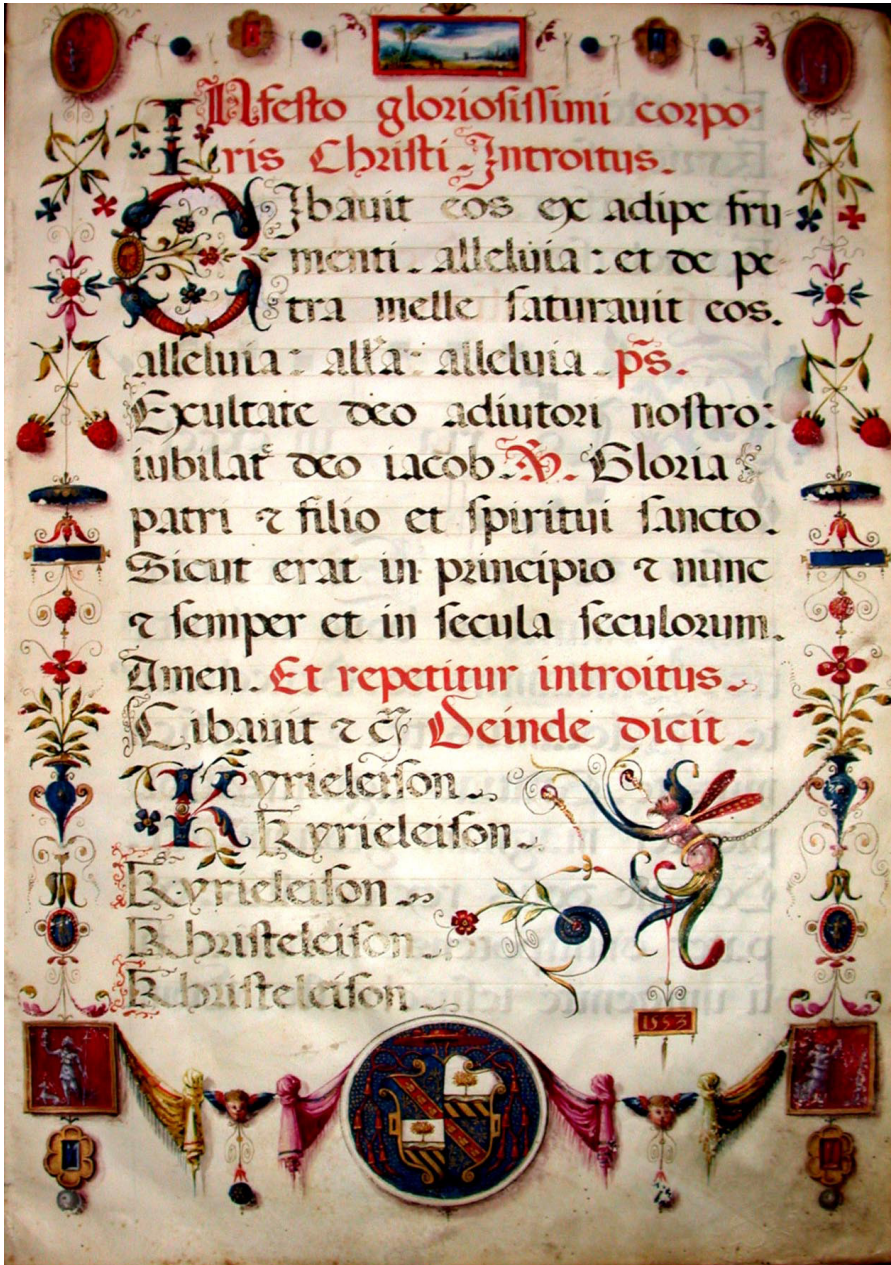 INfesto gloriosissimi corpo
ris Christi. Introitus.
CIbauit eos ex adipe fru-
menti. alleluia: et de pe
tra melle saturauit eos.
alleluia: all'a: alleluia. p̄s.
Exultate deo adiutori nostro:
iubilat̄ deo iacob. V. Gloria
patri ⁊ filio et spiritui sancto.
Sicut erat in principio ⁊ nunc
⁊ semper et in secula seculorum.
Amen. Et repetitur introitus.
Cibauit ⁊ c̄. Deinde dicit.
Kyrieleison.
Kyrieleison.
Kyrieleison.
Khristeleison.
Khristeleison.
1553